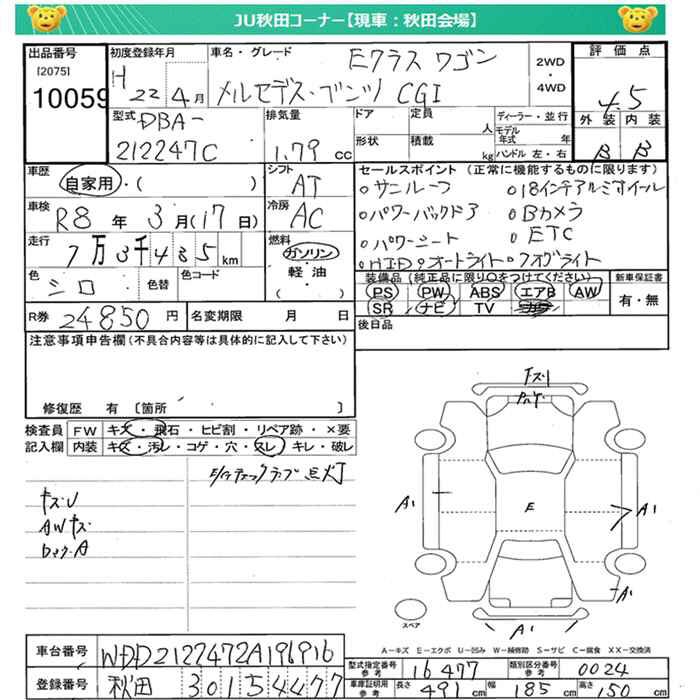 JU秋田コーナー【現車：秋田会場】
出品番号
[2075]
10059
初度登録年月
H 22年 4月
車名・グレード
Eクラス ワゴン
メルセデス・ベンツ CGI
2WD
・
4WD
評価点
4.5
外装 内装
B B
型式
DBA-
212247C
排気量
1.79 cc
ドア
形状
定員 人
積載 kg
ディーラー・並行
モデル年式 年
ハンドル 左・右
車歴
自家用・( )
シフト
AT
車検
R8年 3月(17日)
冷房
AC
走行
7万3千485km
燃料
ガソリン
軽油
( )
色
シロ
色替
色コード
R券 24850円
名変期限 月 日
セールスポイント (正常に機能するものに限ります)
○サンルーフ ○18インチアルミホイール
○パワーバックドア ○Bカメラ
○パワーシート ○ETC
○HID ○オートライト ○フォグライト
装備品 (純正品に限り○をつけてください)
PS PW ABS エアB AW
SR ナビ TV
新車保証書
有・無
後日品
注意事項申告欄(不具合内容等は具体的に記入して下さい)
修復歴 有 〔箇所 〕
検査員記入欄
FW キズ・飛石・ヒビ割・リペア跡・×要
内装 キズ・汚レ・コゲ・穴・スレ・キレ・破レ
E/gチェックランプ点灯
キズU
AWキズ
A1
E
A1
A1
A1
スペア
A－キズ E－エクボ U－凹み W－補修跡 S－サビ C－腐食 XX－交換済
車台番号 WDD2122472A196916
登録番号 秋田 301 5 4477
型式指定番号 参考 16477
類別区分番号 参考 0024
車庫証明用 参考 長さ 491cm 幅 185cm 高さ 150cm